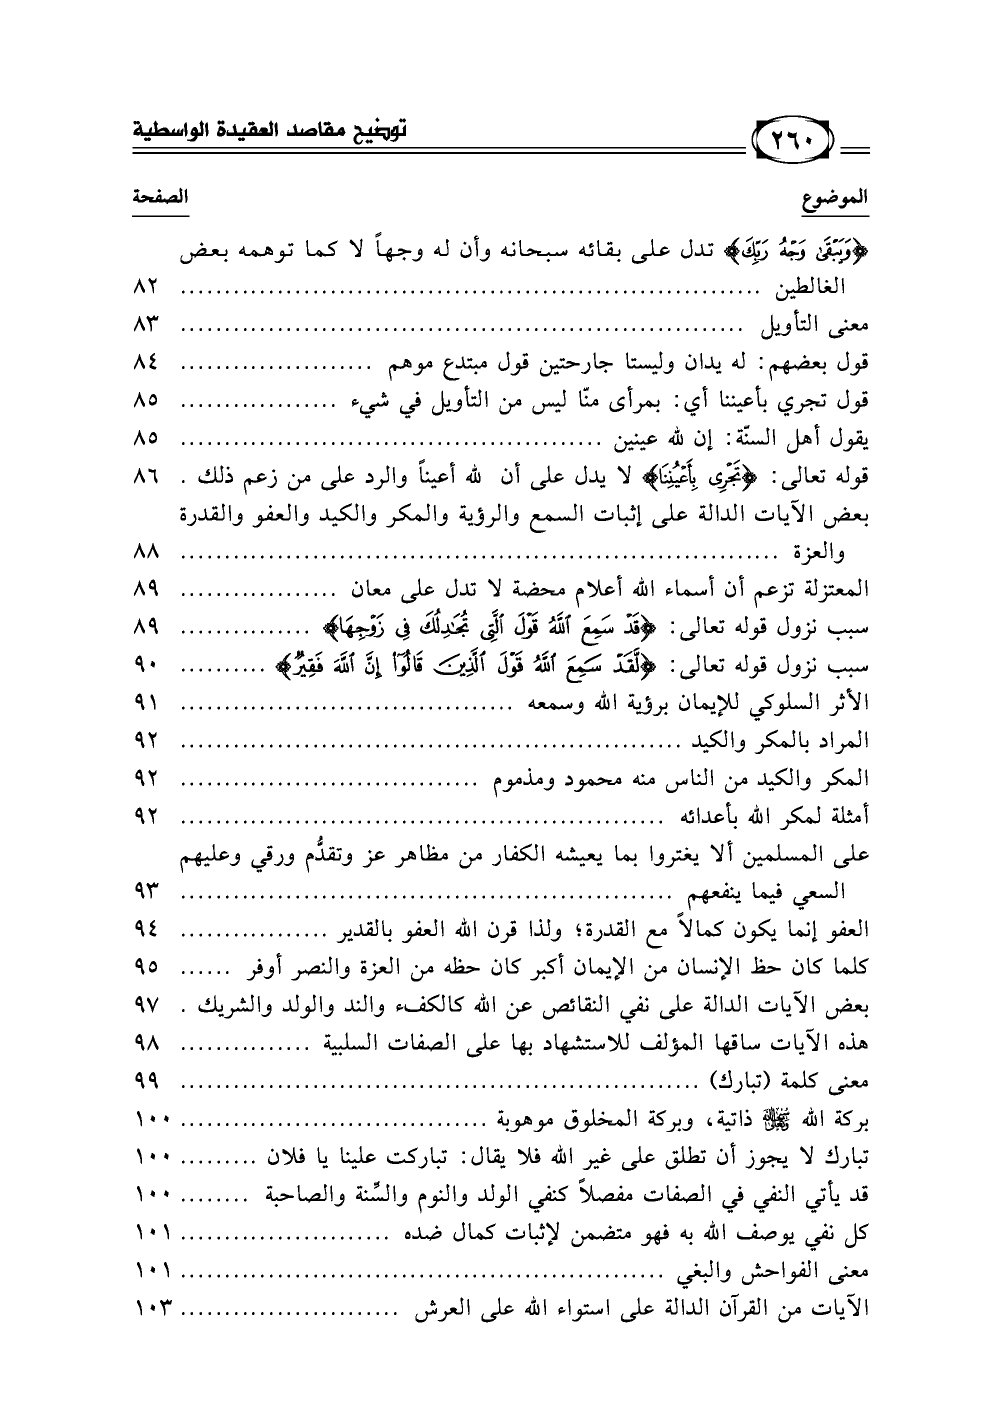 توضيح مقاصد العقيدة الواسطية
٢٦٠
الموضوع الصفحة
﴿وَيَبْقَىٰ وَجْهُ رَبِّكَ﴾ تدل على بقائه سبحانه وأن له وجهاً لا كما توهمه بعض
الغالطين ................................................................ ٨٢
معنى التأويل ................................................................ ٨٣
قول بعضهم: له يدان وليستا جارحتين قول مبتدع موهم ...................... ٨٤
قول تجري بأعيننا أي: بمرأى منّا ليس من التأويل في شيء .................. ٨٥
يقول أهل السنّة: إن لله عينين ................................................ ٨٥
قوله تعالى: ﴿تَجْرِي بِأَعْيُنِنَا﴾ لا يدل على أن لله أعيناً والرد على من زعم ذلك . ٨٦
بعض الآيات الدالة على إثبات السمع والرؤية والمكر والكيد والعفو والقدرة
والعزة .................................................................... ٨٨
المعتزلة تزعم أن أسماء الله أعلام محضة لا تدل على معان .................. ٨٩
سبب نزول قوله تعالى: ﴿قَدْ سَمِعَ ٱللَّهُ قَوْلَ ٱلَّتِي تُجَٰدِلُكَ فِي زَوْجِهَا﴾ ............... ٨٩
سبب نزول قوله تعالى: ﴿لَّقَدْ سَمِعَ ٱللَّهُ قَوْلَ ٱلَّذِينَ قَالُوٓا۟ إِنَّ ٱللَّهَ فَقِيرٌ﴾ .......... ٩٠
الأثر السلوكي للإيمان برؤية الله وسمعه ...................................... ٩١
المراد بالمكر والكيد .......................................................... ٩٢
المكر والكيد من الناس منه محمود ومذموم .................................. ٩٢
أمثلة لمكر الله بأعدائه ........................................................ ٩٢
على المسلمين ألا يغتروا بما يعيشه الكفار من مظاهر عز وتقدُّم ورقي وعليهم
السعي فيما ينفعهم ........................................................ ٩٣
العفو إنما يكون كمالاً مع القدرة؛ ولذا قرن الله العفو بالقدير ................. ٩٤
كلما كان حظ الإنسان من الإيمان أكبر كان حظه من العزة والنصر أوفر ...... ٩٥
بعض الآيات الدالة على نفي النقائص عن الله كالكفء والند والولد والشريك . ٩٧
هذه الآيات ساقها المؤلف للاستشهاد بها على الصفات السلبية ............... ٩٨
معنى كلمة (تبارك) .......................................................... ٩٩
بركة الله ذاتية، وبركة المخلوق موهوبة ................................... ١٠٠
تبارك لا يجوز أن تطلق على غير الله فلا يقال: تباركت علينا يا فلان ......... ١٠٠
قد يأتي النفي في الصفات مفصلاً كنفي الولد والنوم والسِّنة والصاحبة ........ ١٠٠
كل نفي يوصف الله به فهو متضمن لإثبات كمال ضده ........................ ١٠١
معنى الفواحش والبغي ...................................................... ١٠١
الآيات من القرآن الدالة على استواء الله على العرش ......................... ١٠٣